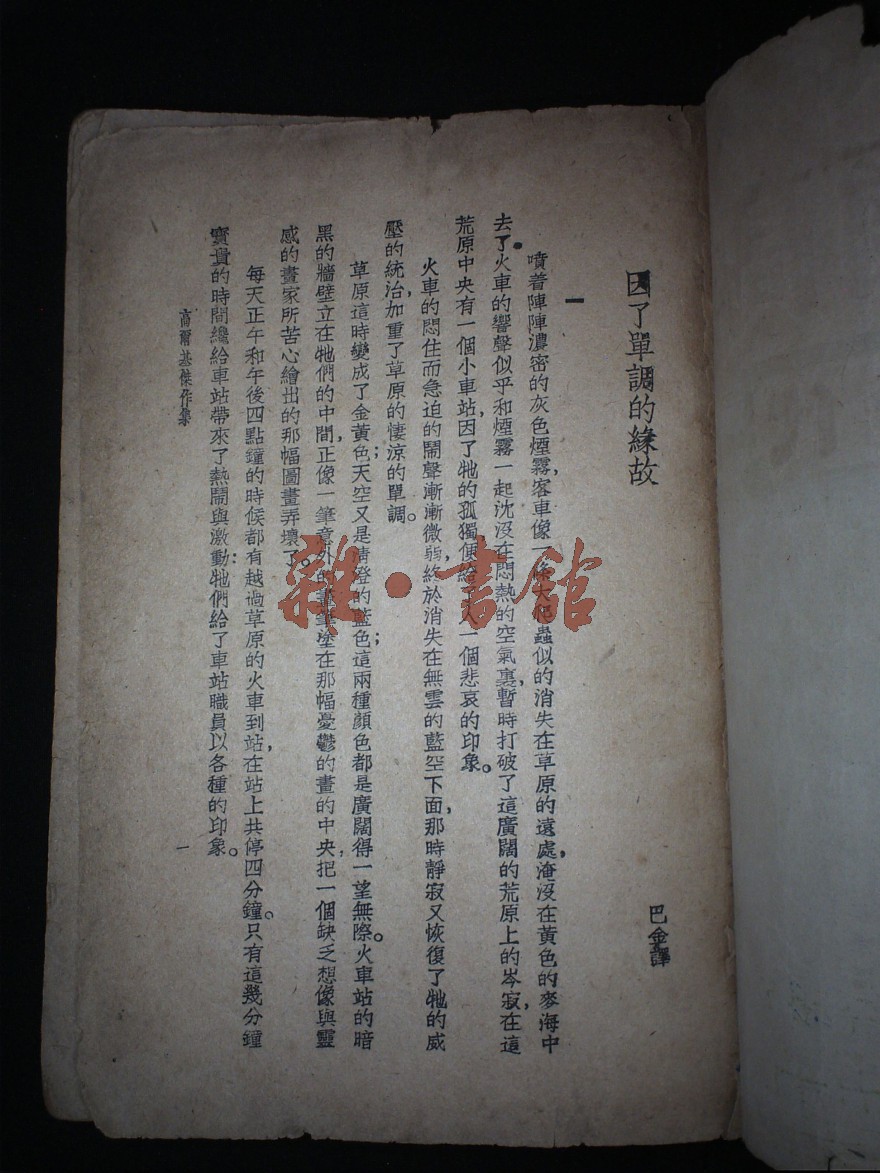 因了單調的緣故
巴金譯
一
噴着陣陣濃密的灰色煙霧，客車像一條大爬蟲似的消失在草原的遠處，淹沒在黃色的麥海中
去了。火車的響聲似乎和煙霧一起沈沒在悶熱的空氣裏，暫時打破了這廣闊的荒原上的岑寂，在這
荒原中央有一個小車站，因了牠的孤獨，便給人一個悲哀的印象。
火車的悶住而急迫的鬧聲漸漸微弱，終於消失在無雲的藍空下面，那時靜寂又恢復了牠的威
壓的統治，加重了草原的悽涼的單調。
草原這時變成了金黃色；天空又是清澄的藍色；這兩種顏色都是廣闊得一望無際。火車站的暗
黑的牆壁立在牠們的中間，正像一筆意外的畫筆塗在那幅憂鬱的畫的中央，把一個缺乏想像與靈
感的畫家所苦心繪出的那幅圖畫弄壞了。
每天正午和午後四點鐘的時候都有越過草原的火車到站，在站上共停四分鐘。只有這幾分鐘
寶貴的時間纔給車站帶來了熱鬧與激動：牠們給了車站職員以各種的印象。
高爾基傑作集
一
雜·書館